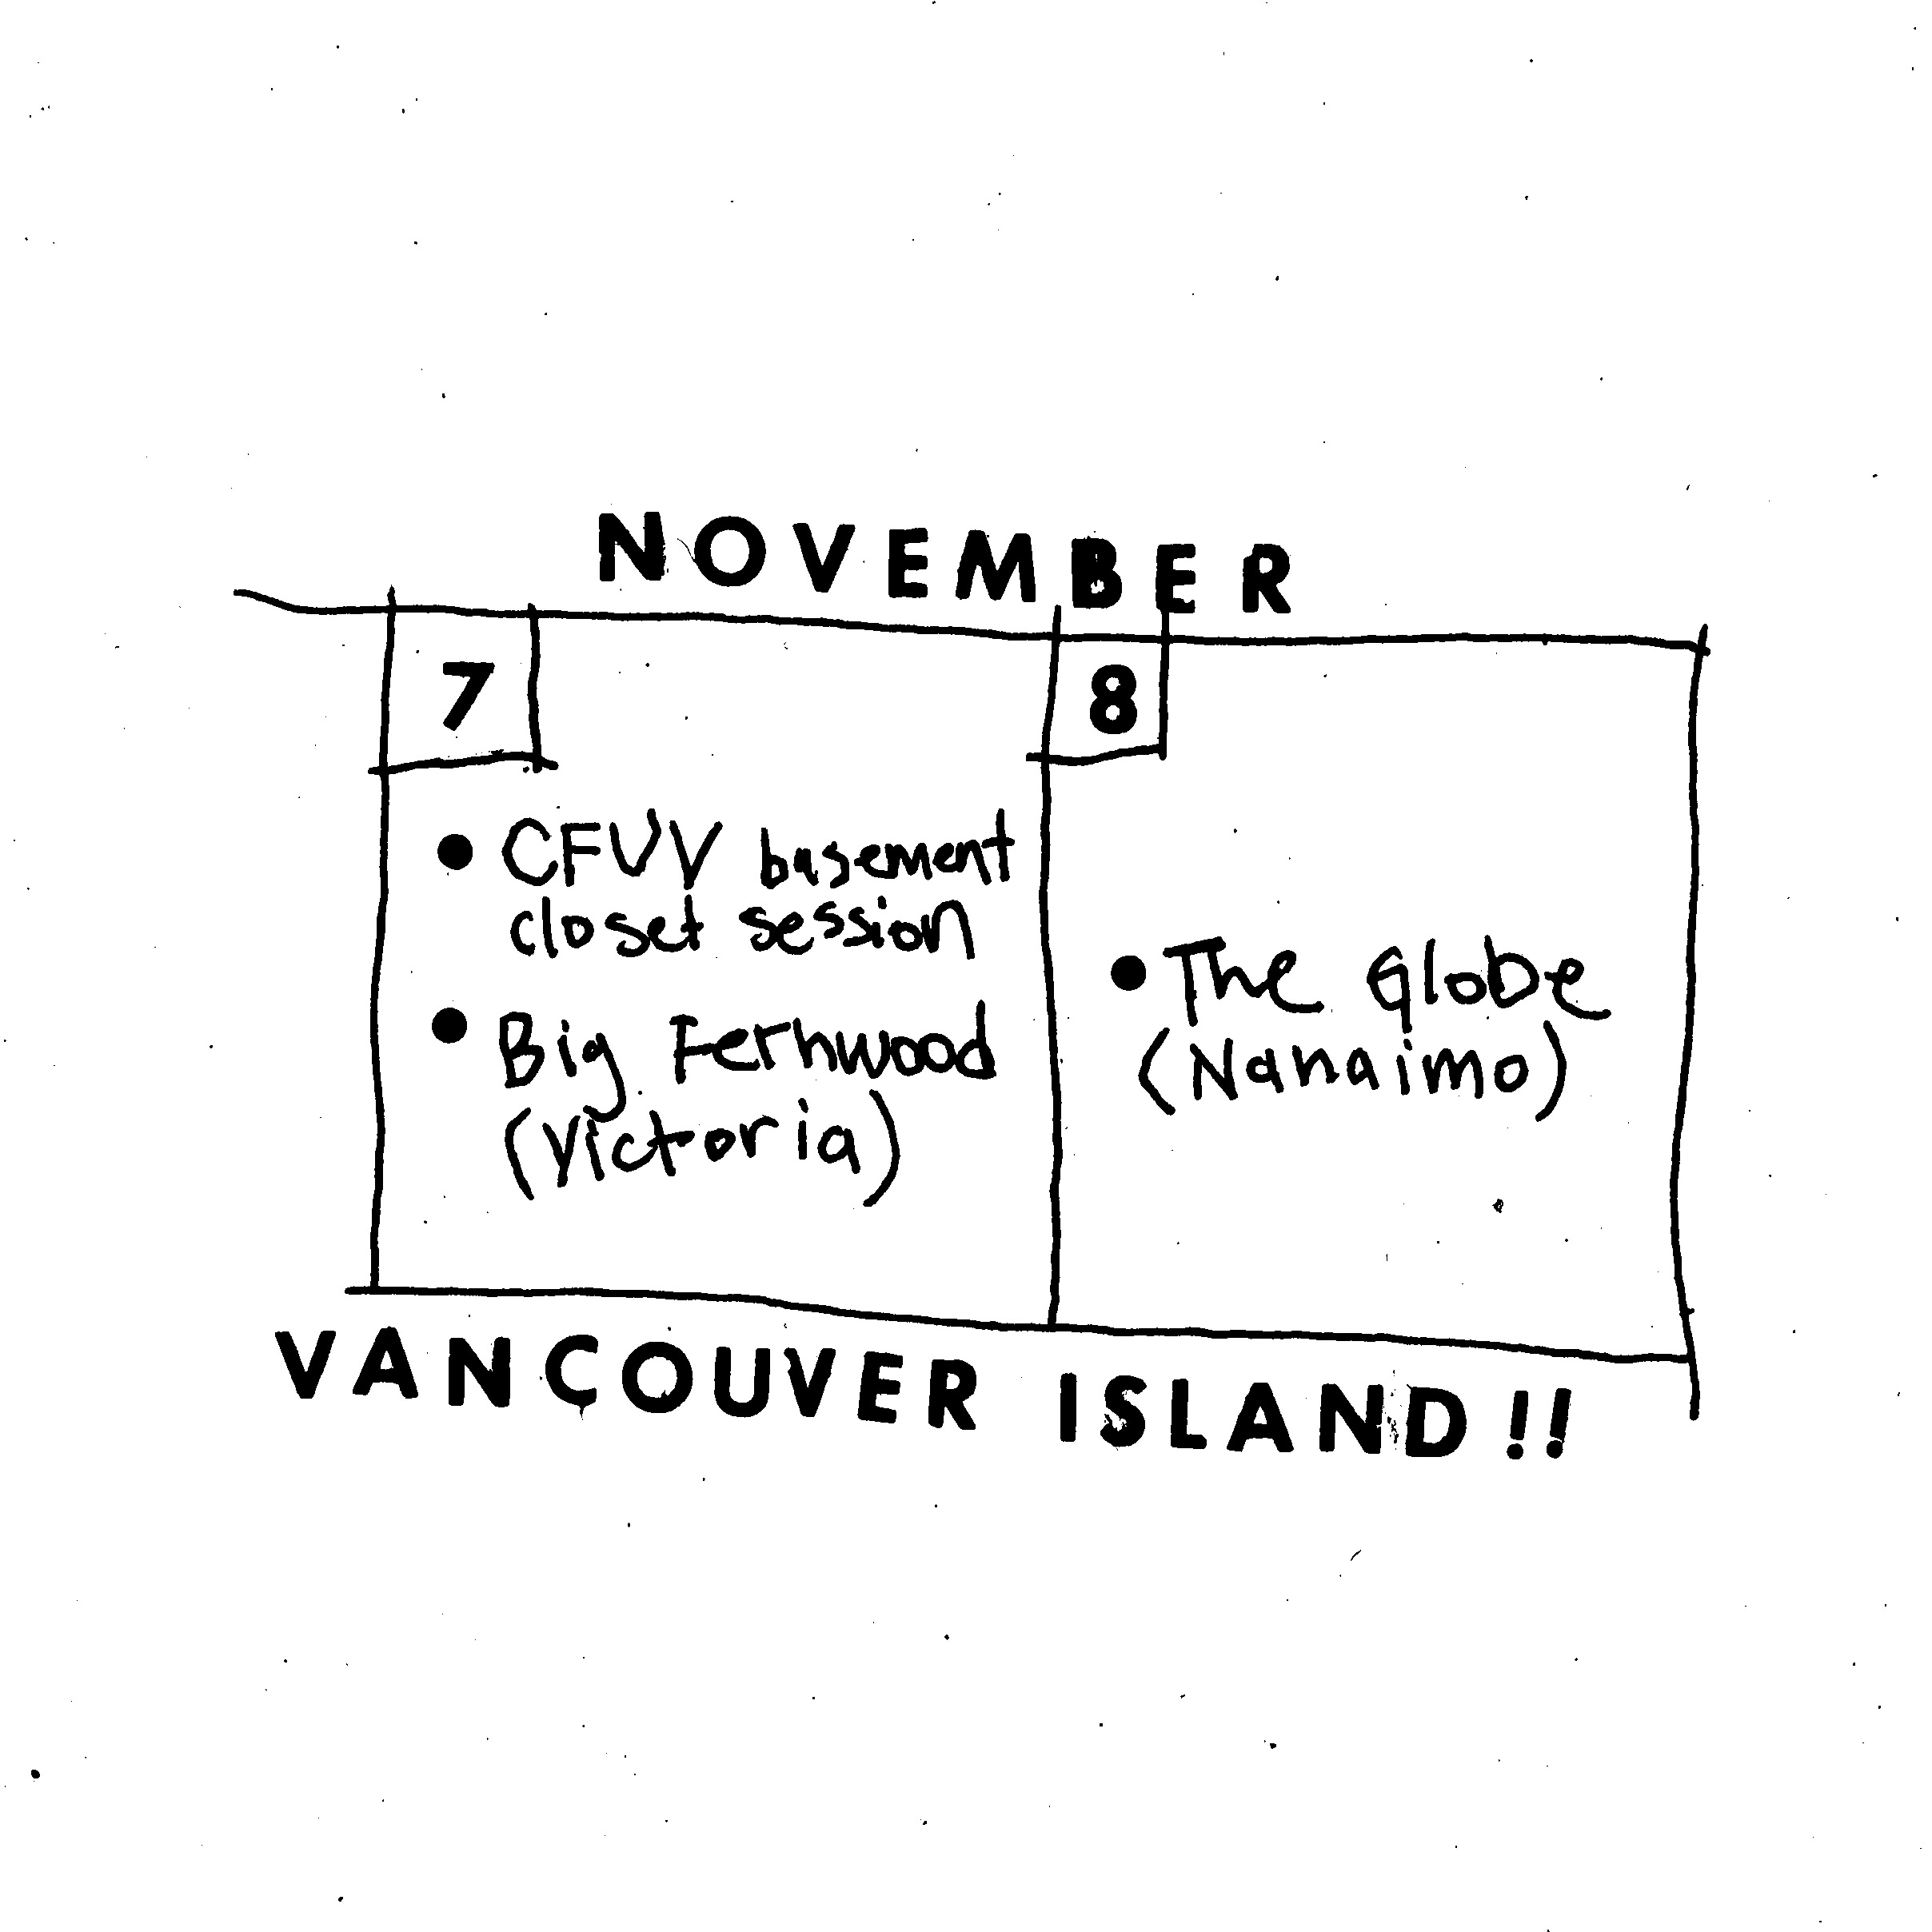 NOVEMBER
7
• CFUV basement
closet session
• Big Fernwood
(Victoria)
8
• The Globe
(Nanaimo)
VANCOUVER ISLAND!!